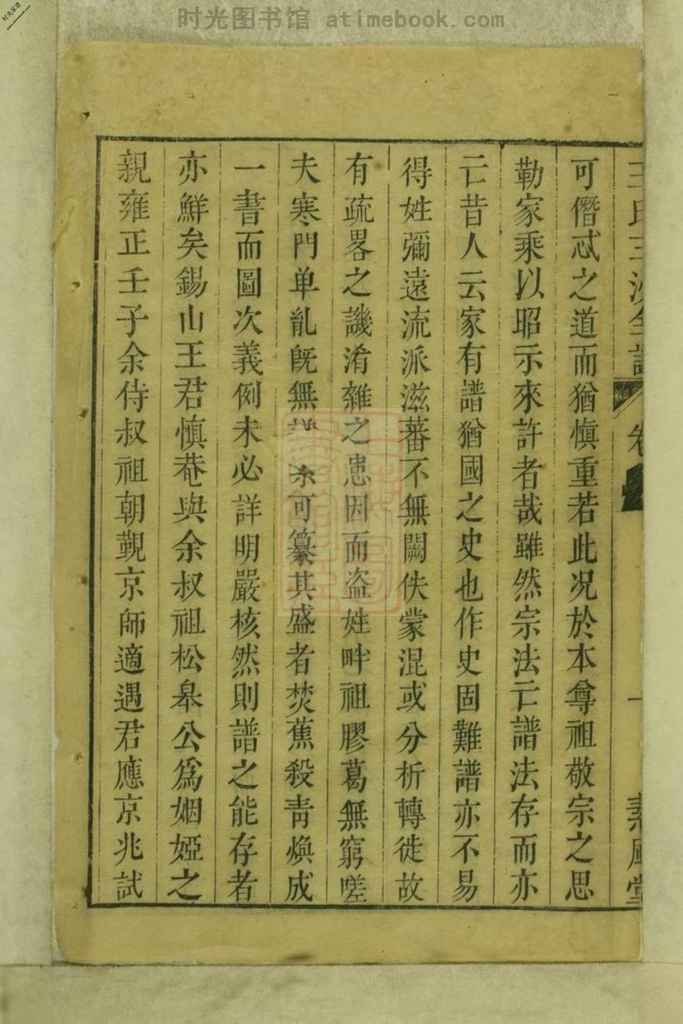 时光图书馆 atimebook.com
可僭忒之道而猶慎重若此况於本尊祖敬宗之思
勒家乘以昭示來許者哉雖然宗法亡譜法存而亦
亡昔人云家有譜猶國之史也作史固難譜亦不易
得姓彌遠流派滋蕃不無闕佚蒙混或分析轉徙故
有疏畧之譏淆雜之患因而盜姓畔祖膠葛無窮嗟
夫寒門单乿旣無 可纂其盛者焚蕉殺青煥成
一書而圖次義例未必詳明嚴核然則譜之能存者
亦鮮矣錫山王君慎菴與余叔祖松皋公爲姻婭之
親雍正壬子余侍叔祖朝覲京師適遇君應京兆試